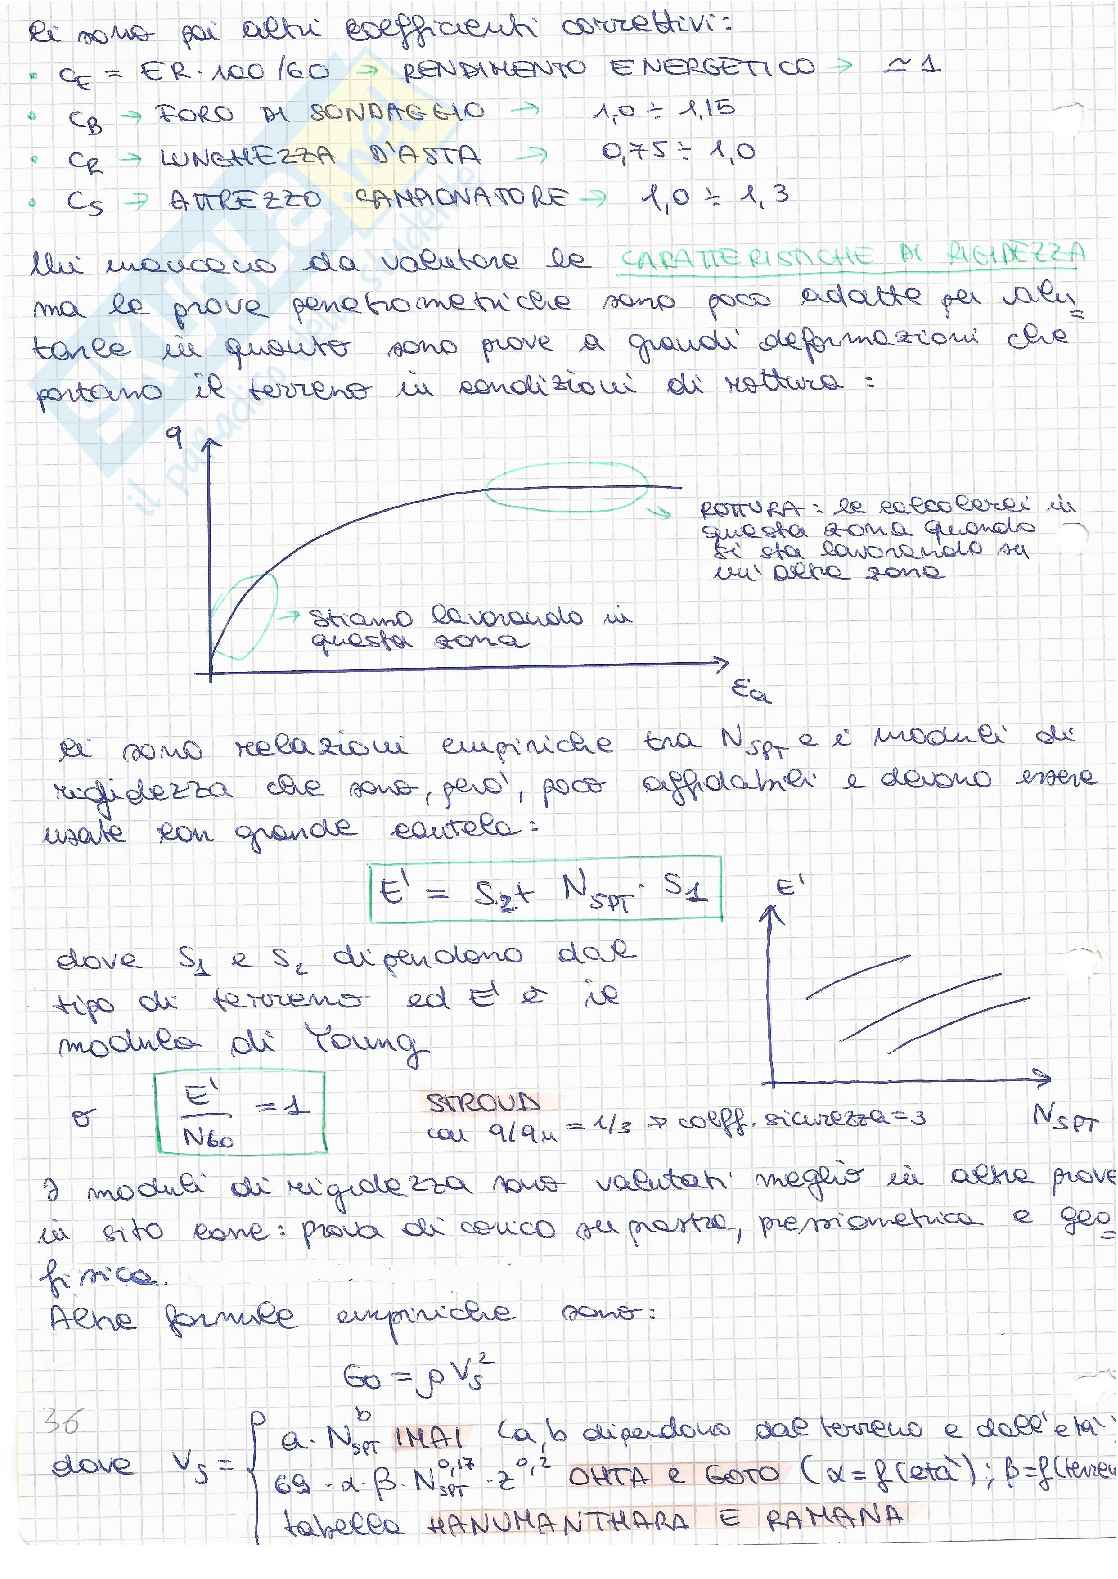 Ci sono poi altri coefficienti correttivi:
• C_E = ER·100/60 → RENDIMENTO ENERGETICO → ≃ 1
• C_B → FORO DI SONDAGGIO → 1,0 ÷ 1,15
• C_R → LUNGHEZZA D'ASTA → 0,75 ÷ 1,0
• C_S → ATTREZZO CAMPIONATORE → 1,0 ÷ 1,3
Mi mancano da valutare le CARATTERISTICHE DI RIGIDEZZA
ma le prove penetrometriche sono poco adatte per valu=
tarle in quanto sono prove a grandi deformazioni che
portano il terreno in condizioni di rottura:
q
ROTTURA: le calcolerei in
questa zona quando
si sta lavorando su
un'altra zona
→ stiamo lavorando in
questa zona
ε_a
Ci sono relazioni empiriche tra N_SPT e i moduli di
rigidezza che sono, però, poco affidabili e devono essere
usate con grande cautela:
E' = S_2 + N_SPT · S_1
E'
dove S_1 e S_2 dipendono dal
tipo di terreno ed E' è il
modulo di Young
N_SPT
o E'/N60 = 1 STROUD
con q/q_u = 1/3 → coeff. sicurezza = 3
I moduli di rigidezza sono valutati meglio in altre prove
in sito come: prova di carico su piastra, pressiometrica e geo=
fisica.
Altre formule empiriche sono:
G0 = ρ V_s^2
36
dove V_s = { a · N_SPT^b IMAI (a, b dipendono dal terreno e dall'età)
69 · α · β · N_SPT^0,17 · z^0,2 OHTA e GOTO (α = f(età); β = f(terren
tabella HANUMANTHARA E RAMANA